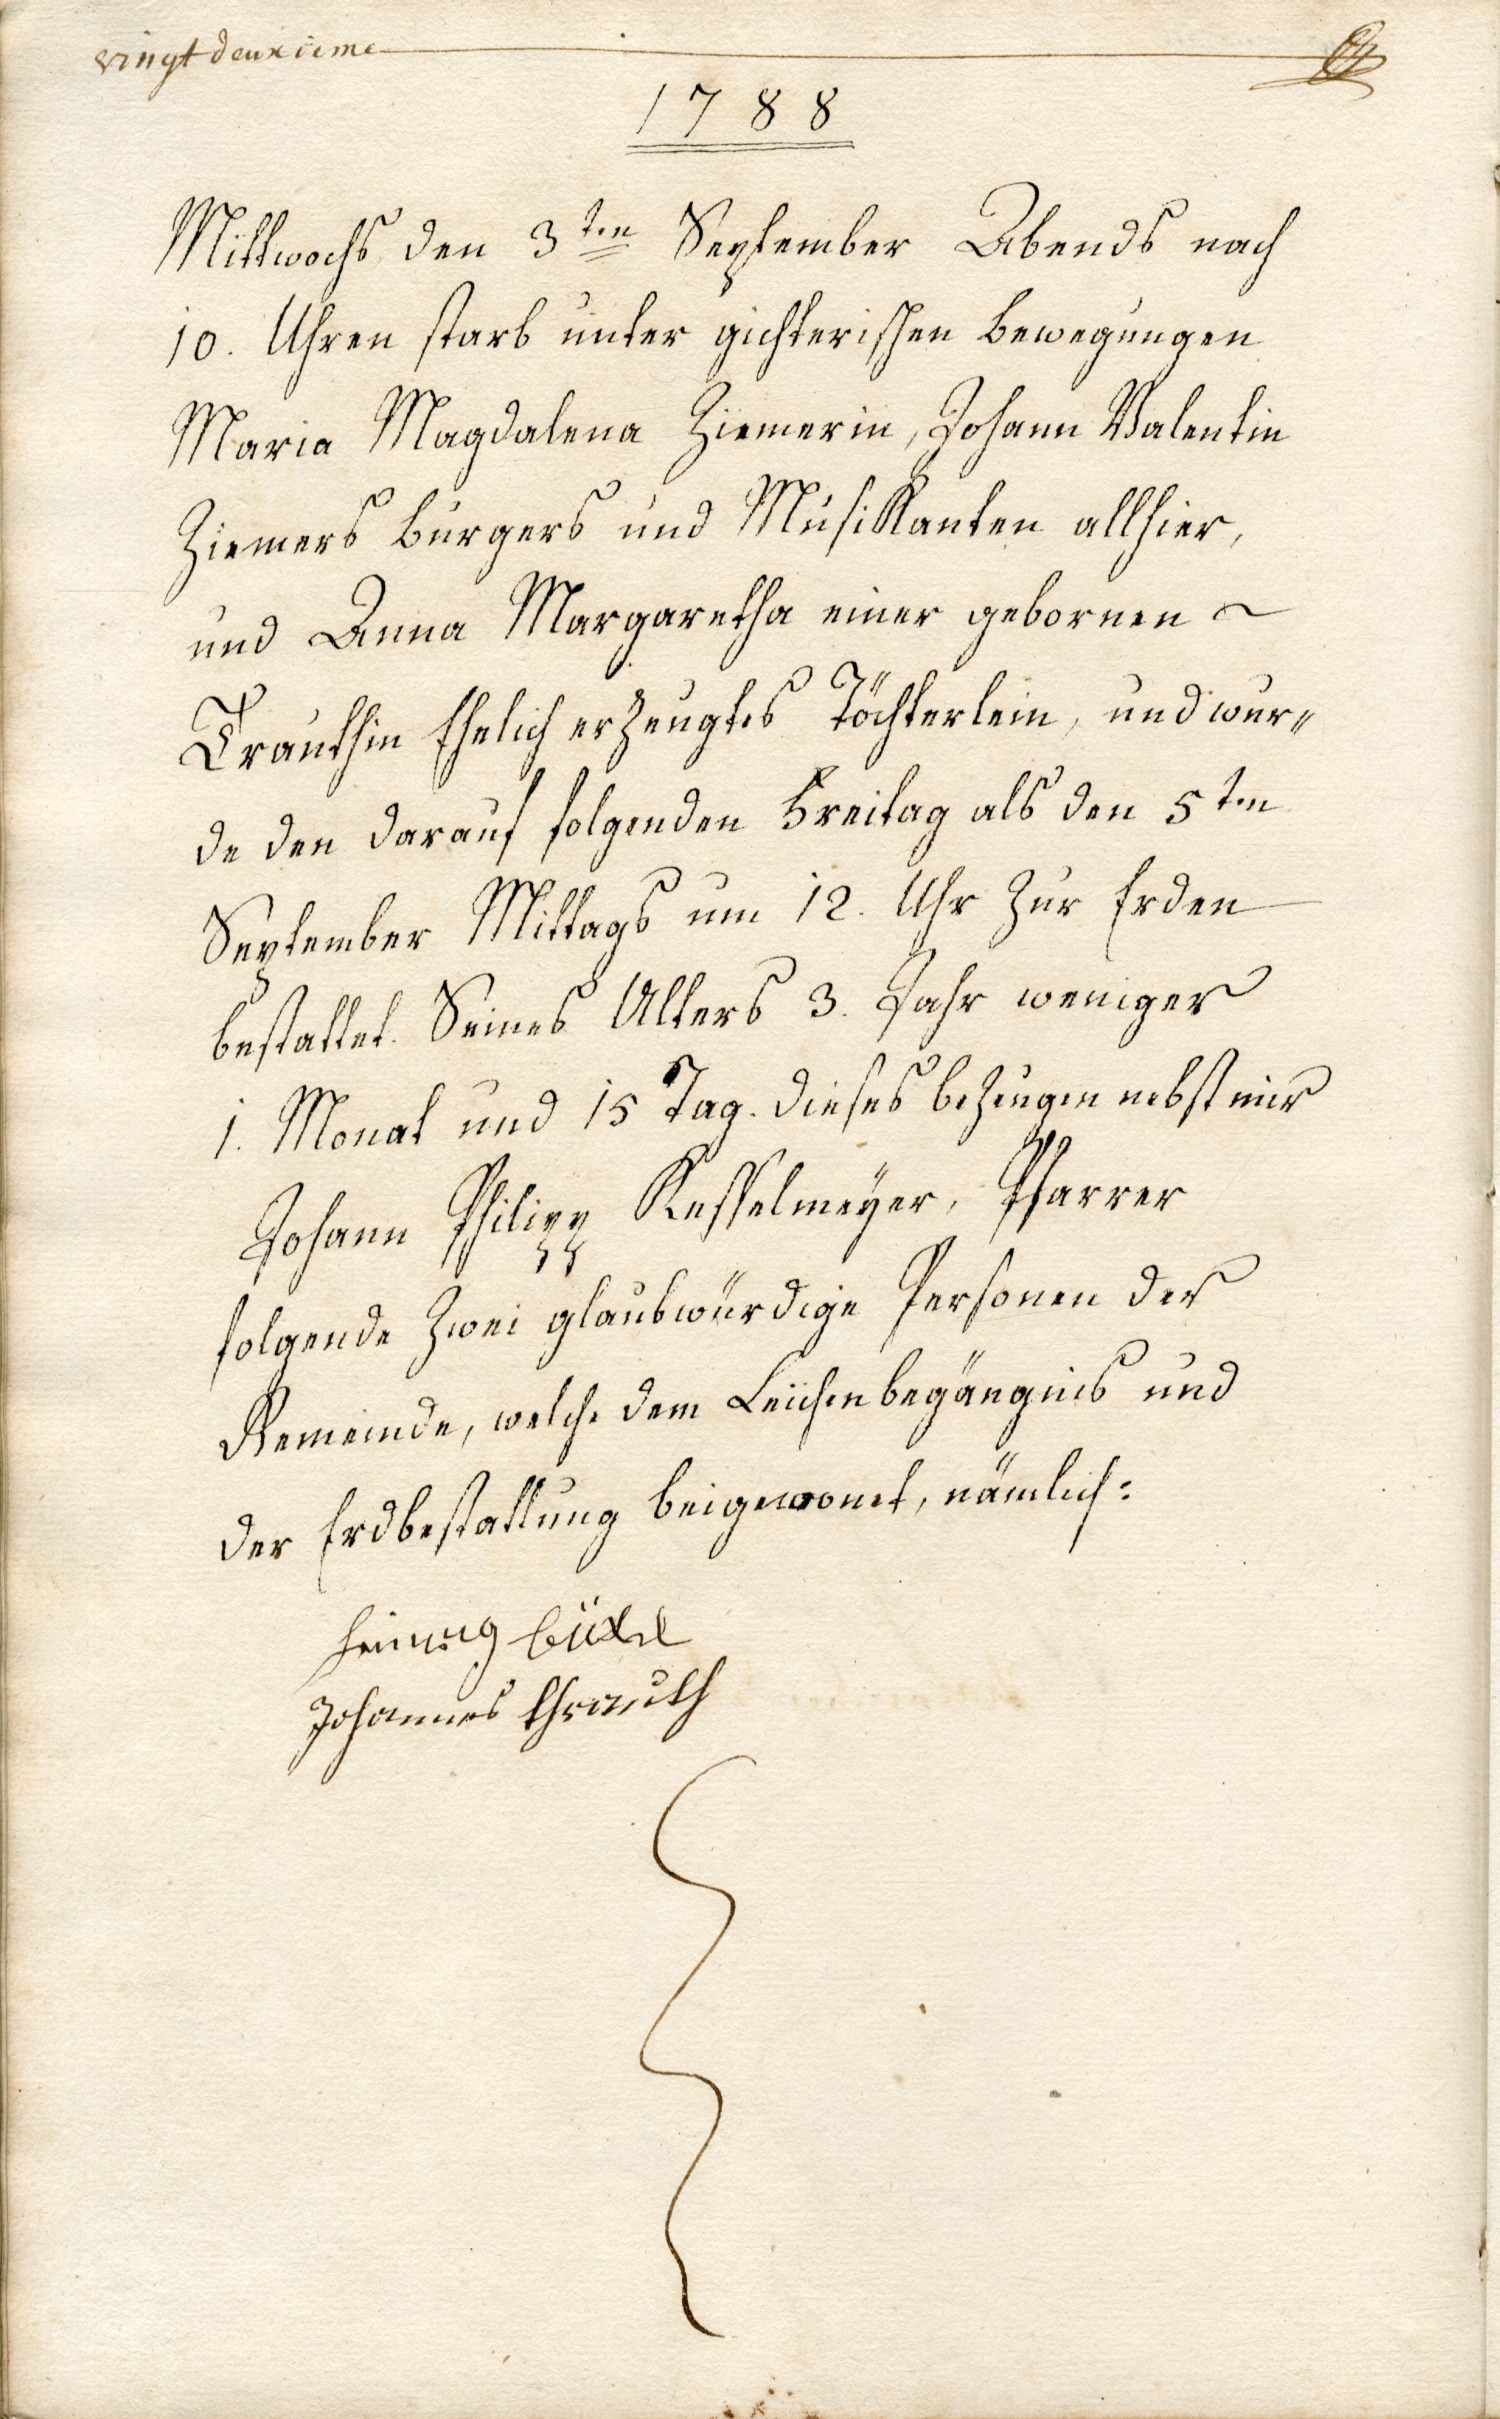 vingt deuxieme
1788
Mittwochs den 3ten September Abends nach
10. Uhren starb unter gichterischen Bewegungen
Maria Magdalena Ziemerin, Johann Valentin
Ziemers Burgers und Musikkanten allhier,
und Anna Margaretha einer gebornen ~
Trauthin Ehelich erzeugtes Töchterlein, und wur„
de den darauf folgenden Freitag als den 5ten
September Mittags um 12. Uhr zur Erden
bestattet. Seines Alters 3. Jahr weniger
1. Monat und 15 Tag. Dieses bezeugen nebst mir
Johann Philipp Kesselmeyer, Pfarrer
folgende zwei glaubwürdige Personen der
Gemeinde, welche dem Leichenbegängnis und
der Erdbestattung beigewonet, nämlich:
Johannes thrauth